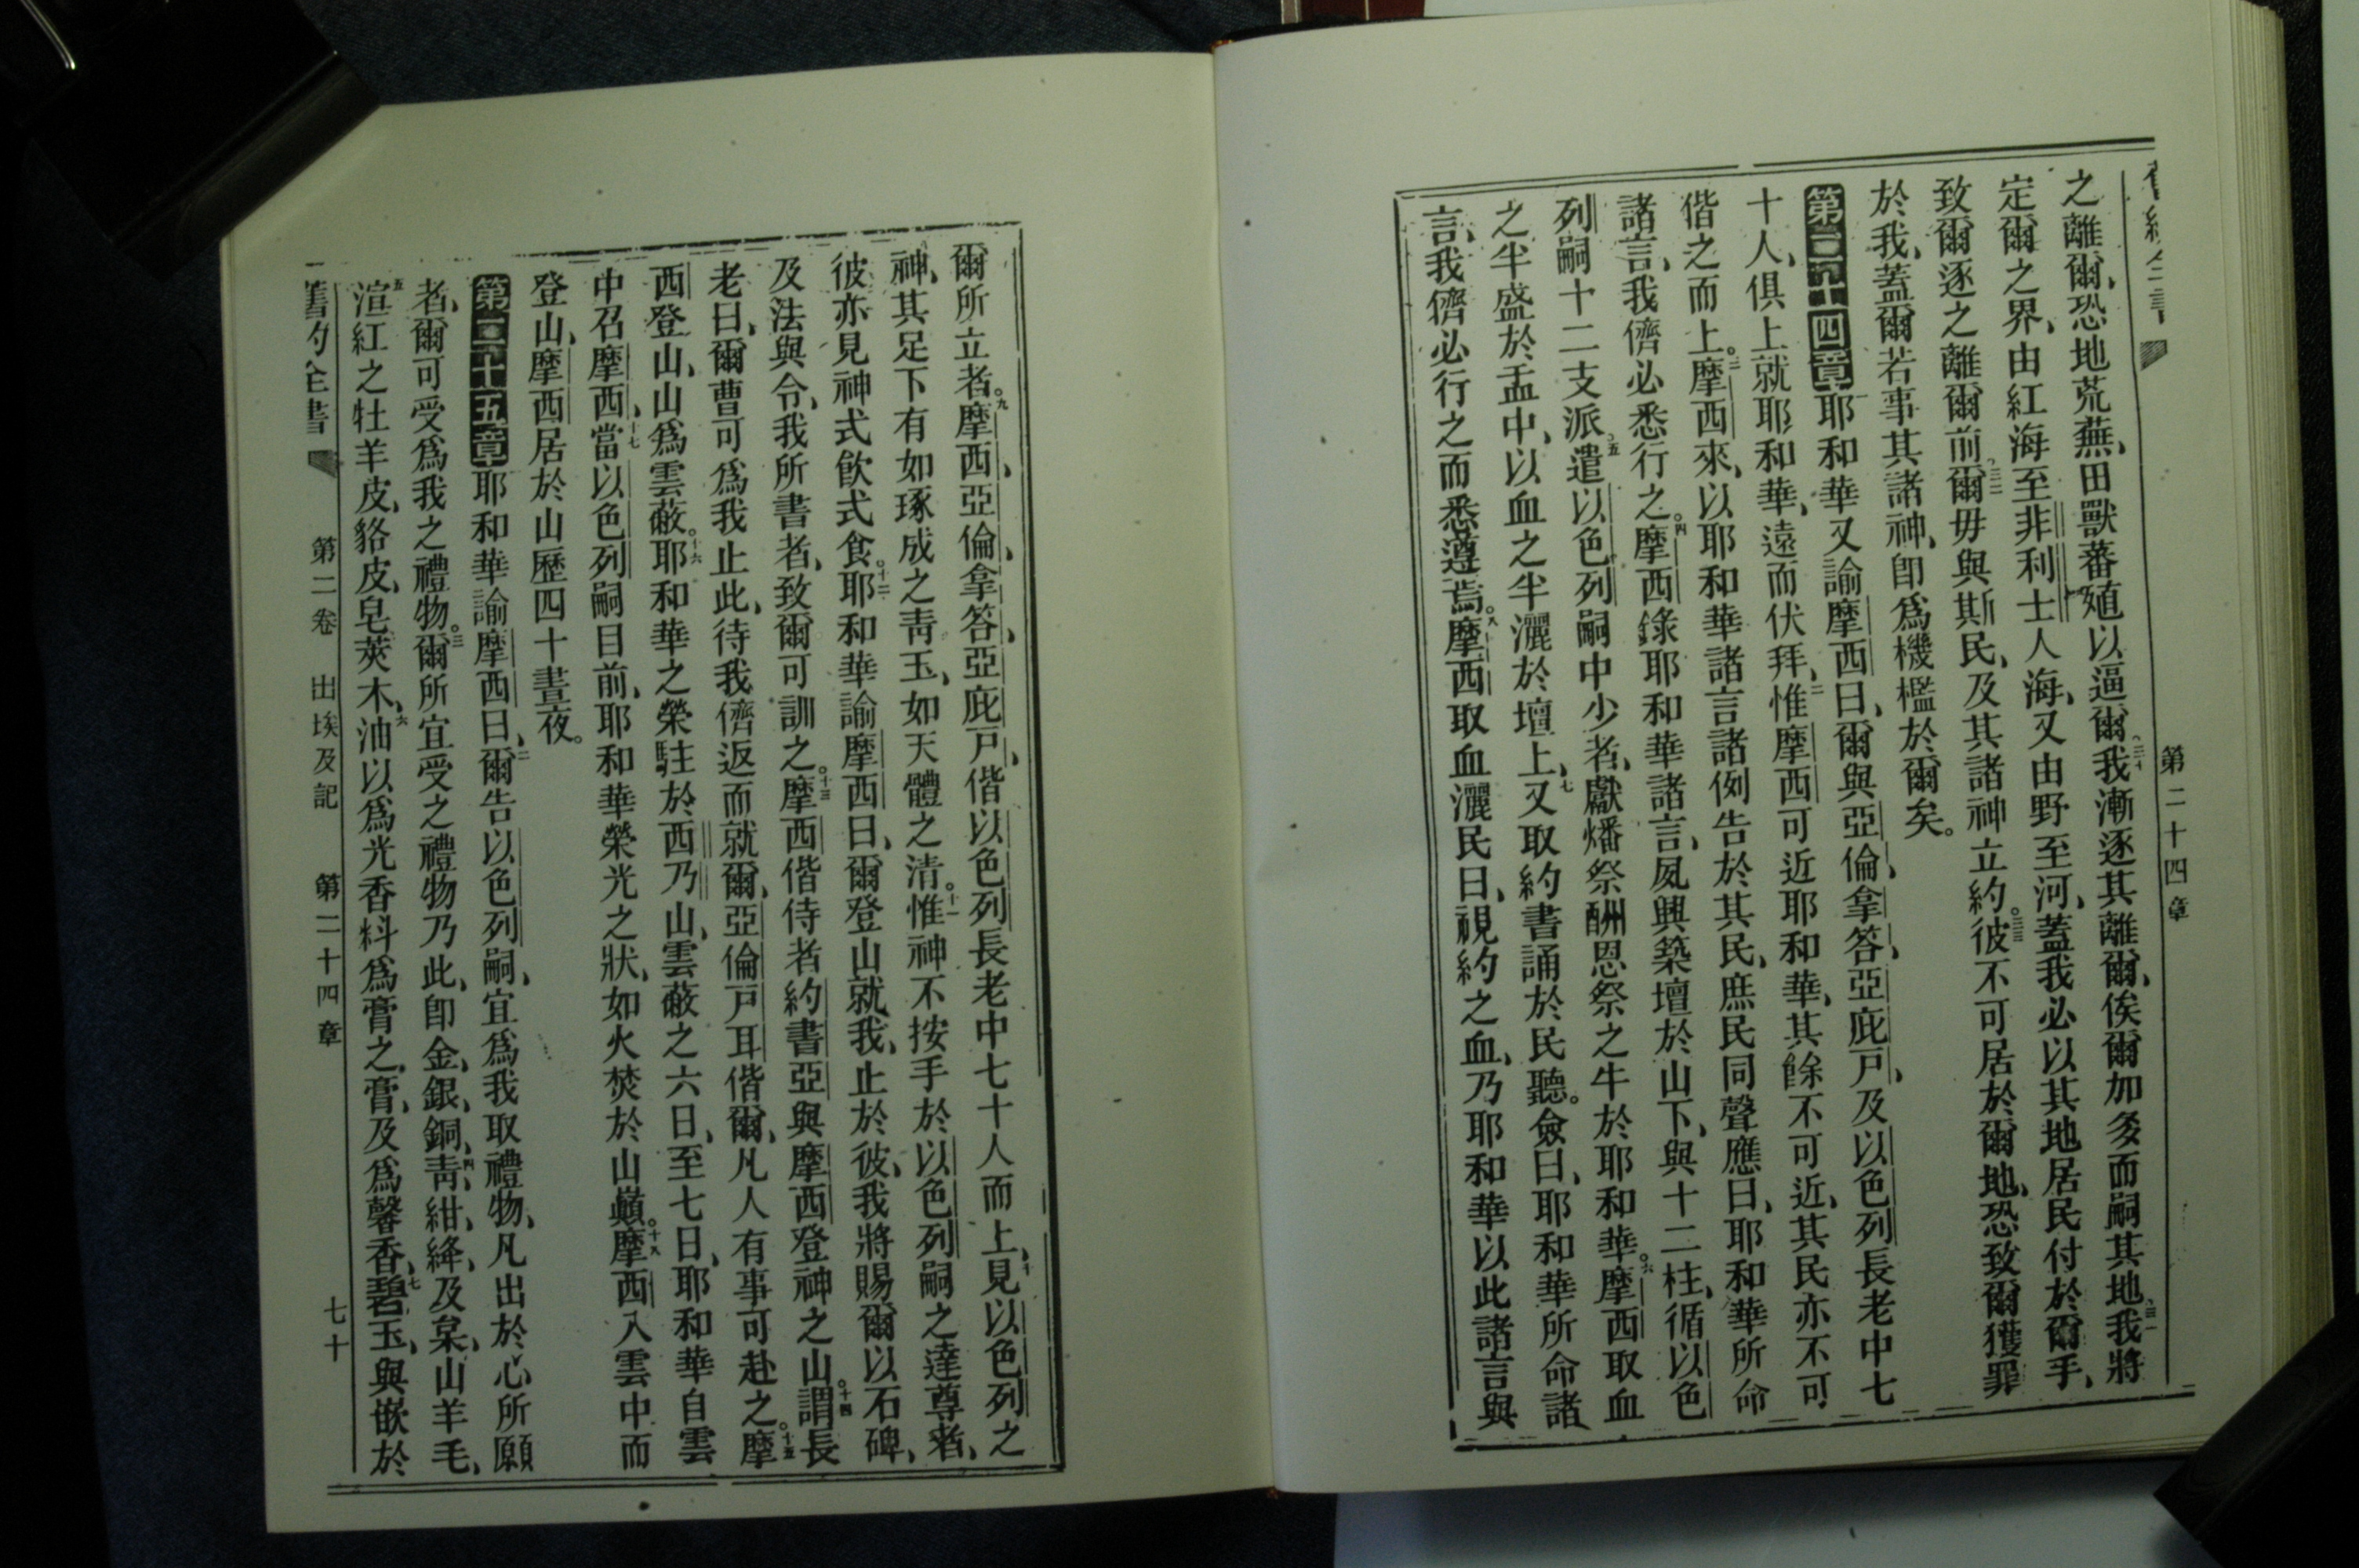 舊約全書 第二十四章
之離爾、恐地荒蕪、田獸蕃殖以逼爾、三十我漸逐其離爾、俟爾加多而嗣其地、三一我將
定爾之界、由紅海至非利士人海、又由野至河、蓋我必以其地居民付於爾手、
致爾逐之離爾前、三二爾毋與斯民、及其諸神立約。三三彼不可居於爾地、恐致爾獲罪
於我、蓋爾若事其諸神、卽爲機檻於爾矣。
第二十四章 一耶和華又諭摩西曰、爾與亞倫、拿答、亞庇戸、及以色列長老中七
十人、俱上就耶和華、遠而伏拜、二惟摩西可近耶和華、其餘不可近、其民亦不可
偕之而上。三摩西來、以耶和華諸言諸例告於其民、庶民同聲應曰、耶和華所命
諸言、我儕必悉行之。四摩西錄耶和華諸言、夙興築壇於山下、與十二柱、循以色
列嗣十二支派、五遣以色列嗣中少者、獻燔祭酬恩祭之牛於耶和華。六摩西取血
之半盛於盂中、以血之半灑於壇上、七又取約書誦於民聽。僉曰、耶和華所命諸
言、我儕必行之而悉遵焉。八摩西取血灑民曰、視約之血、乃耶和華以此諸言與
爾所立者。九摩西、亞倫、拿答、亞庇戸、偕以色列長老中七十人而上、十見以色列之
神、其足下有如琢成之靑玉、如天體之清。十一惟神不按手於以色列嗣之達尊者、
彼亦見神式飮式食。十二耶和華諭摩西曰、爾登山就我、止於彼、我將賜爾以石碑、
及法與令、我所書者、致爾可訓之。十三摩西偕侍者約書亞與摩西登神之山。十四謂長
老曰、爾曹可爲我止此、待我儕返而就爾、亞倫戸耳偕爾、凡人有事可赴之。十五摩
西登山、山爲雲蔽。十六耶和華之榮駐於西乃山、雲蔽之六日、至七日、耶和華自雲
中召摩西、十七當以色列嗣目前、耶和華榮光之狀、如火焚於山巓。十八摩西入雲中而
登山、摩西居於山歷四十晝夜。
第二十五章 耶和華諭摩西曰、二爾告以色列嗣、宜爲我取禮物、凡出於心所願
者、爾可受爲我之禮物。三爾所宜受之禮物乃此、卽金、銀、銅、四靑、紺、絳、及枲、山羊毛、
五渲紅之牡羊皮、貉皮、皂莢木、六油以爲光香料爲膏之、膏、及爲馨香、七碧玉、與嵌於
舊約全書 第二卷 出埃及記 第二十四章 七十